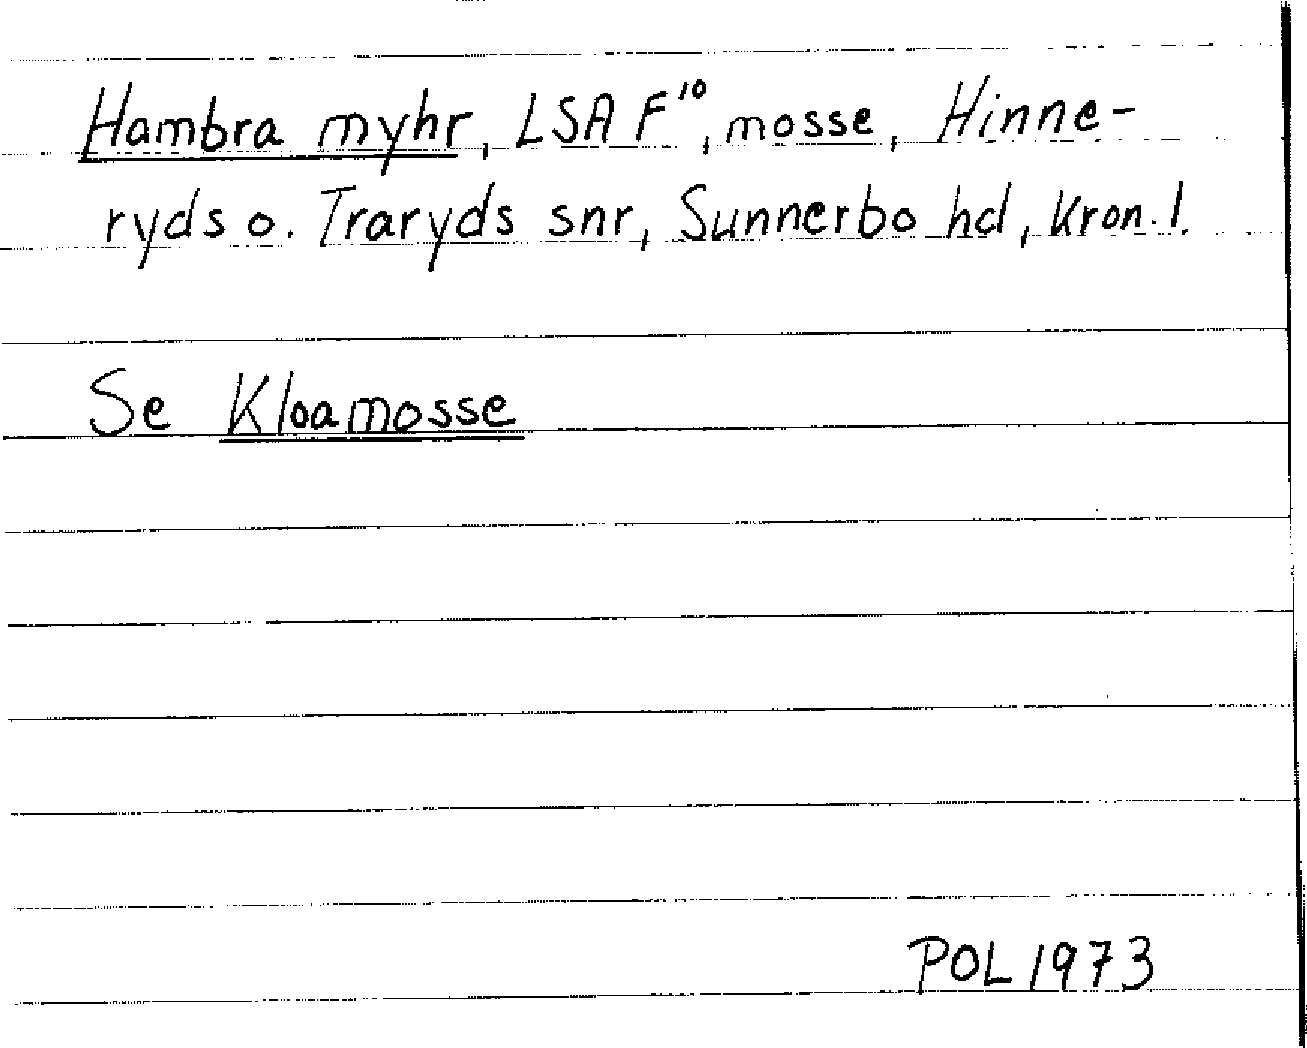 Hambra myhr, LSA F¹⁰, mosse, Hinne-
ryds o. Traryds snr, Sunnerbo hd, Kron. l.
Se Kloamosse
POL 1973